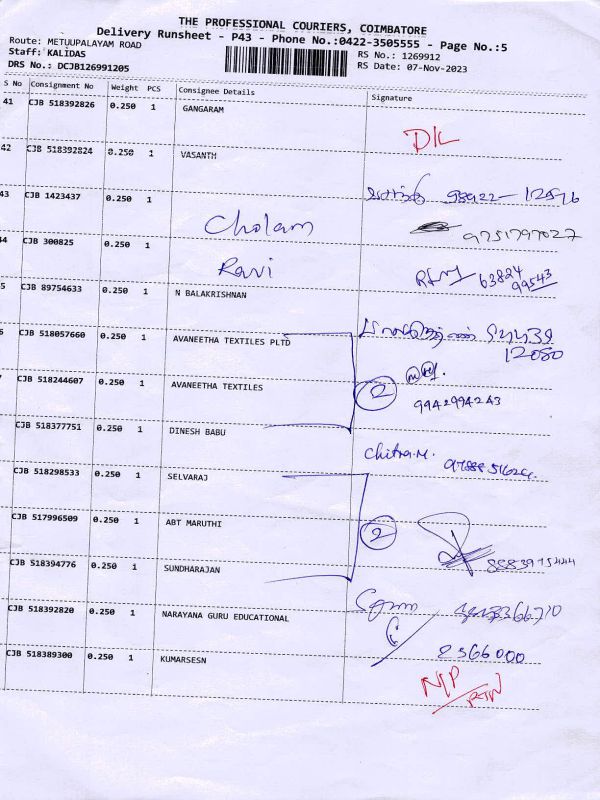 THE PROFESSIONAL COURIERS, COIMBATORE
Delivery Runsheet - P43 - Phone No.:0422-3505555 - Page No.:5
Route: METUUPALAYAM ROAD
Staff: KALIDAS
DRS No.: DCJB126991205
RS No.: 1269912
RS Date: 07-Nov-2023
S No Consignment No Weight PCS Consignee Details Signature
41 CJB 518392826 0.250 1 GANGARAM
D/L
42 CJB 518392824 0.250 1 VASANTH
43 CJB 1423437 0.250 1 Cholam
9751797027
44 CJB 300825 0.250 1 Ravi
63824
99543
5 CJB 89754633 0.250 1 N BALAKRISHNAN
12080
6 CJB 518057660 0.250 1 AVANEETHA TEXTILES PLTD
7 CJB 518244607 0.250 1 AVANEETHA TEXTILES
2
9942994243
CJB 518377751 0.250 1 DINESH BABU
Chitra.M.
CJB 518298533 0.250 1 SELVARAJ
CJB 517996509 0.250 1 ABT MARUTHI
2
8883975444
CJB 518394776 0.250 1 SUNDHARAJAN
CJB 518392820 0.250 1 NARAYANA GURU EDUCATIONAL
2566000
CJB 518389300 0.250 1 KUMARSESN
N/P
RTN